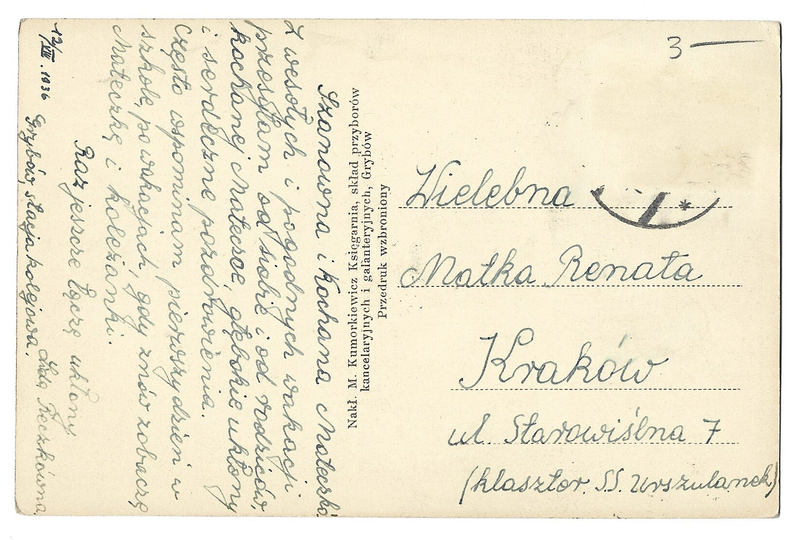 Szanowna i Kochana Mateczko
Z wesołych i pogodnych wakacji
przesyłam od siebie i od rodziców,
kochanej Mateczce głębokie ukłony
i serdeczne pozdrowienia.
Często wspominam pierwszy dzień w
szkole, po wakacjach, gdy znów zobaczę
Mateczkę i koleżanki.
Raz jeszcze łączę ukłony
Reczkówna
Grybów, stacja kolejowa.
12/VIII. 1936
Nakł. M. Kumorkiewicz Księgarnia, skład przyborów
kancelaryjnych i galanteryjnych, Grybów
Przedruk wzbroniony
3 —
Wielebna
Matka Renata
Kraków
ul. Starowiślna 7
(klasztor SS. Urszulanek)